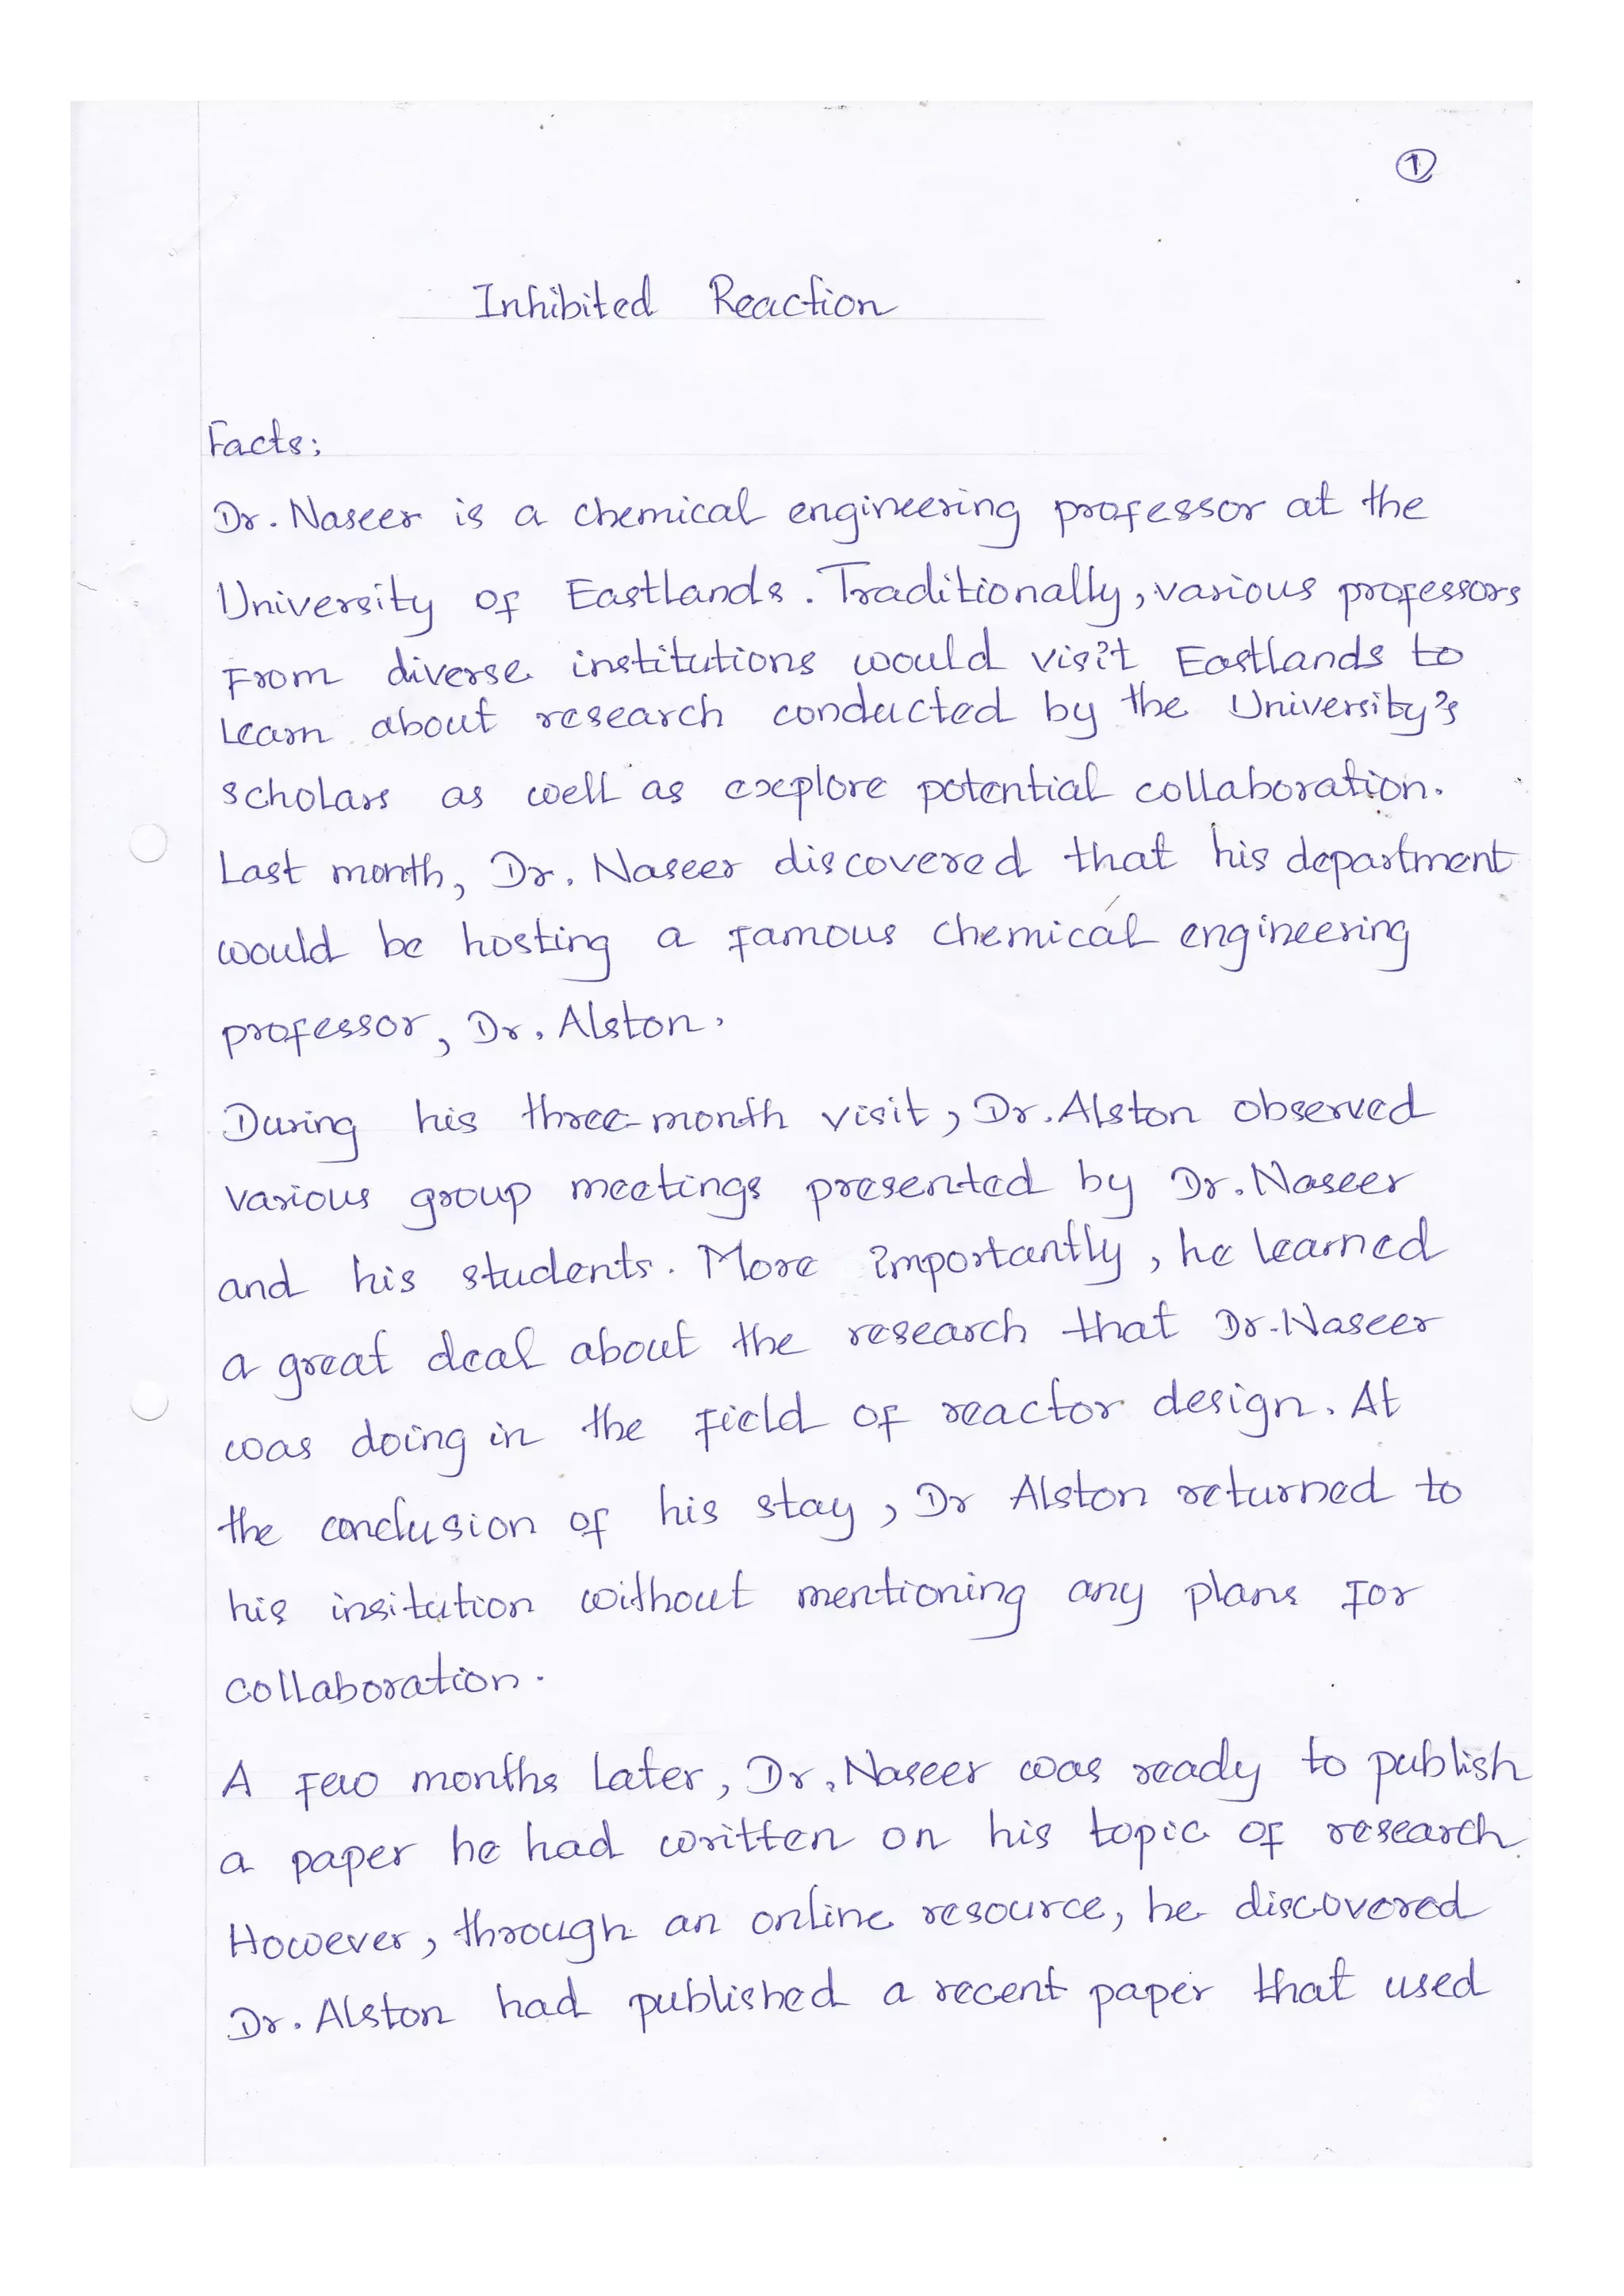 1
Inhibited Reaction
Facts:
Dr. Naseer is a chemical engineering professor at the
University of Eastlands. Traditionally, various professors
from diverse institutions would visit Eastlands to
learn about research conducted by the University's
scholars as well as explore potential collaboration.
Last month, Dr. Naseer discovered that his department
would be hosting a famous chemical engineering
professor, Dr. Alston.
During his three-month visit, Dr. Alston observed
various group meetings presented by Dr. Naseer
and his students. More importantly, he learned
a great deal about the research that Dr. Naseer
was doing in the field of reactor design. At
the conclusion of his stay, Dr Alston returned to
his insitution without mentioning any plans for
collaboration.
A few months later, Dr. Naseer was ready to publish
a paper he had written on his topic of research.
However, through an online resource, he discovered
Dr. Alston had published a recent paper that used